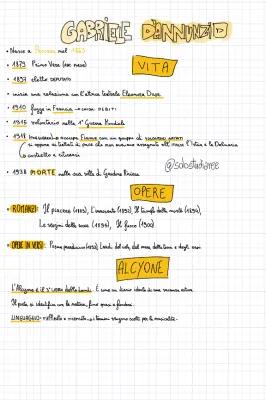 GABRIELE D'ANNUNZIO
• Nasce a Pescara nel 1863
VITA
• 1879 Primo Vere
• 1897 eletto DEPUTATO
• inizia una relazione con l'attrice teatrale Eleonora Duse
• 1910 fugge in Francia → DEBITI
• 1915 volontario nella 1ª Guerra Mondiale
• occupa Fiume con un gruppo di volontari armati
si oppone ai trattati di pace che non avevano assegnato all' l'Istria e la Dalmazia
costretto a ritirarsi
@sabstudiaree
• 1938 MORTE nella sua villa di Gardone Riviera
OPERE
• ROMANZI: Il piacere (1889), L'innocente (1892), Il trionfo della morte (1894),
Le vergini delle rocce (1895), Il fuoco (1900)
• OPERE IN VERSI: Poema paradisiaco (1893) Laudi del cielo, del mare, della terra e degli eroi
ALCYONE
L'Alcyone è il 3° libro delle Laudi. È come un diario ideale di una vacanza estiva
Il poeta si identifica con la natura, fino quasi a fondersi.
LINGUAGGIO: raffinato e ricercato, i termini vengono scelti per la musicalità